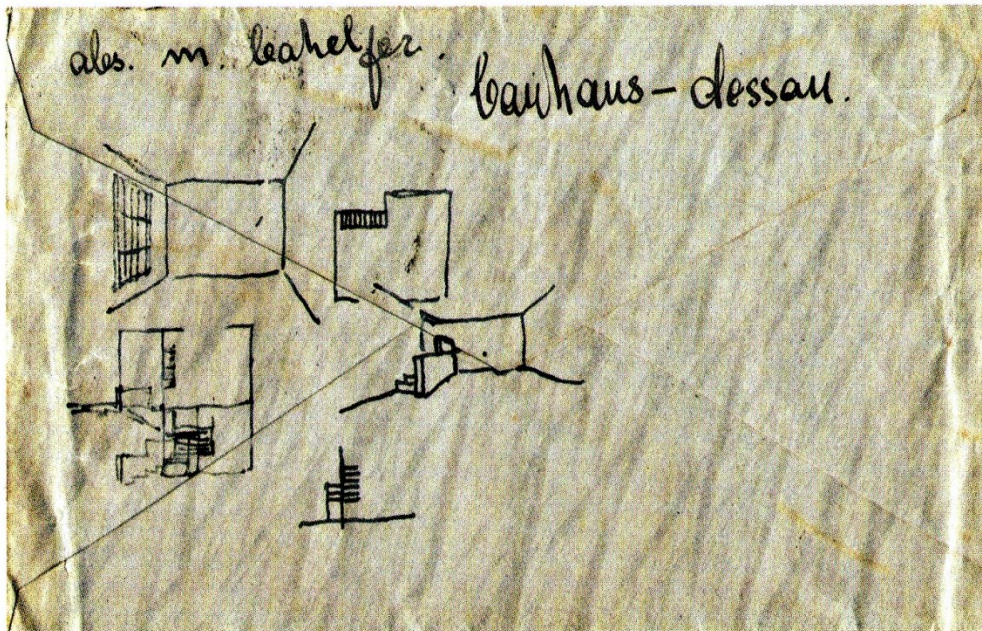 abs. m. bahelfer.
bauhaus - dessau.